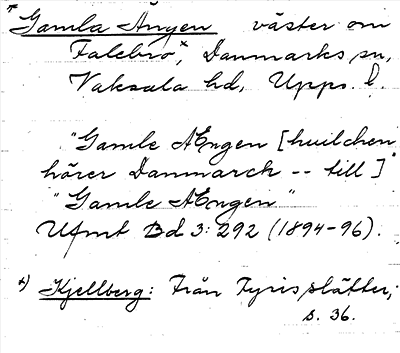 *Gamla Ängen väster om
Falebro*, Danmarks sn,
Vaksala hd, Upps. l.
"Gamle AEngen [huilchen
hörer Danmarck -- till]"
"Gamle AEngin"
Ufmt Bd 3: 292 (1894-96).
*) Kjellberg: Från Fyris slätter,
s. 36.